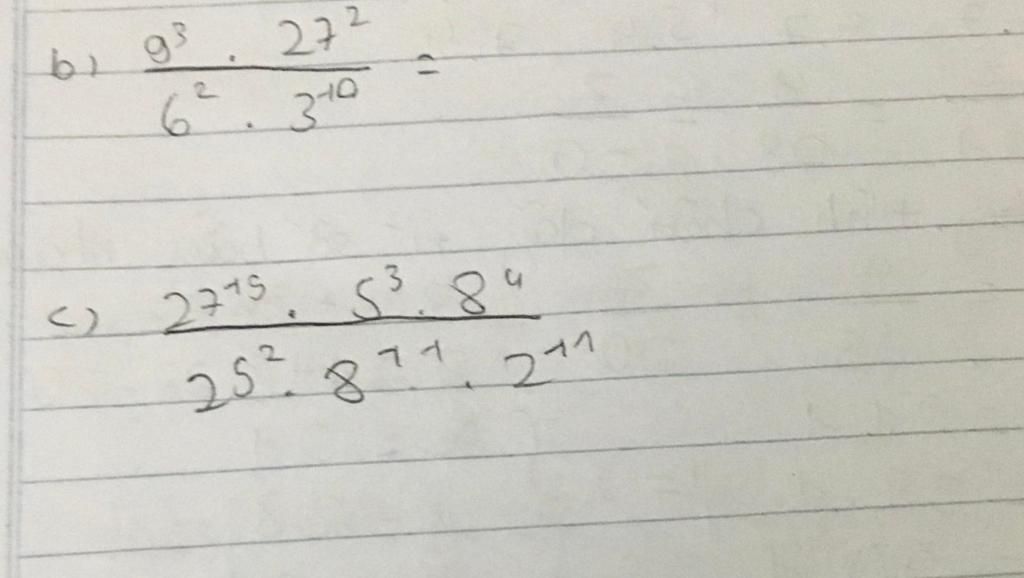 b) 9³ . 27²
6² . 3¹⁰ =
c) 27¹⁵ . 5³ . 8⁴
25² . 8¹¹ . 2¹¹